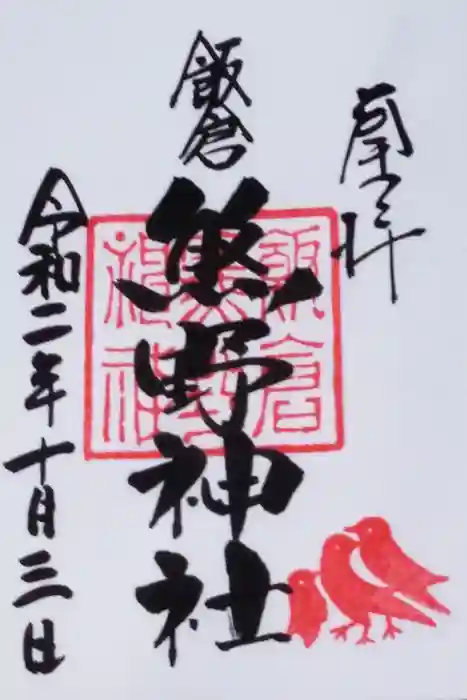 奉拝
飯倉
熊野神社
令和二年十月三日
飯倉熊野神社